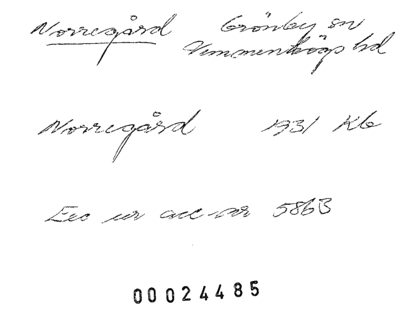 Norregård Grönby sn
Vemmenhögs hd
Norregård 1931 Kb
Exc ur acc-nr 5863
00024485